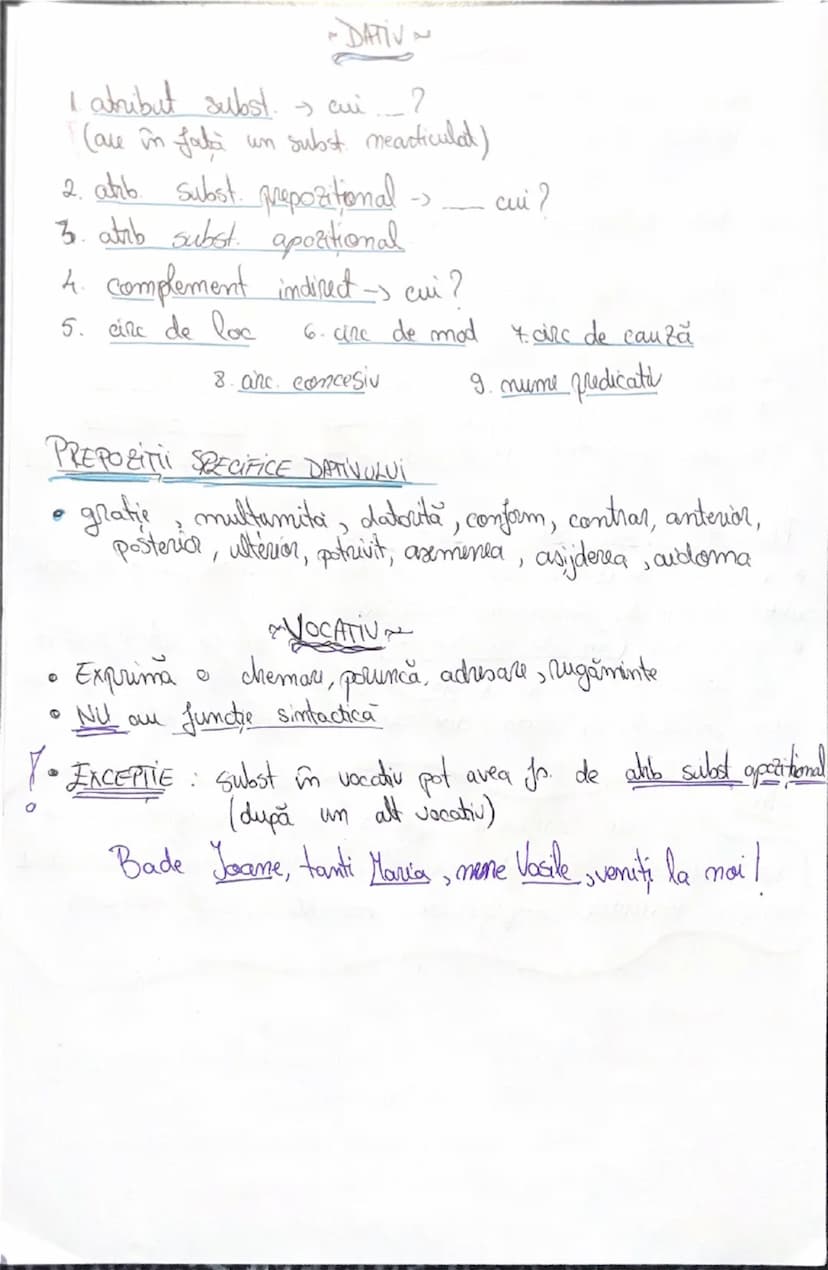 ~ DATIV ~
1. atribut subst. → cui ...?
(are în față un subst. nearticulat)
2. atrib. subst. prepozițional -> __ cui?
3. atrib subst. apozițional
4. complement indirect -> cui?
5. circ de loc 6. circ de mod 7. circ de cauză
8. circ. concesiv 9. nume predicativ
PREPOZIȚII SPECIFICE DATIVULUI
• grație, mulțumită, datorită, conform, contrar, anterior,
posterior, ulterior, potrivit, asemenea, așijderea, aidoma
~VOCATIV~
• Exprimă o chemare, poruncă, adresare, rugăminte
• NU au funcție sintactică
! • EXCEPȚIE : subst în vocativ pot avea fc. de atrib subst apozițional
(după un alt vocativ)
Bade Ioane, tanti Maria, nene Vasile, veniți la noi!